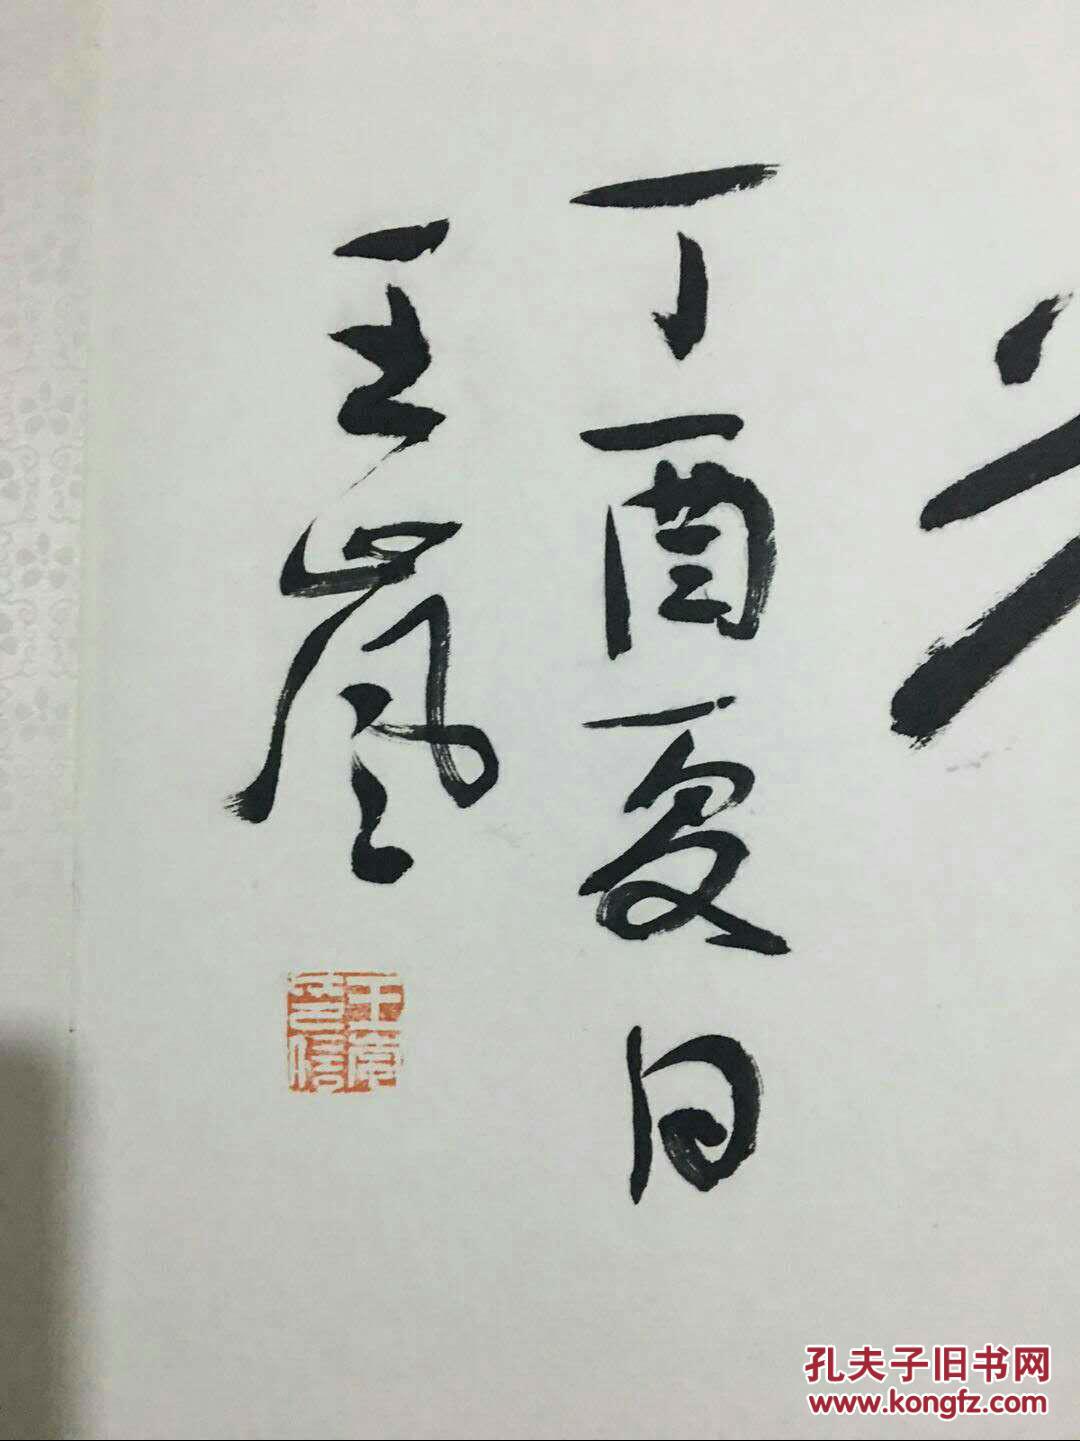 丁酉夏日
王嵐
孔夫子旧书网
www.kongfz.com